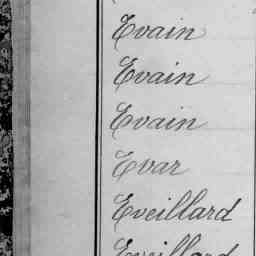 Evain
Evain
Evain
Evar
Eveillard
Eveillard